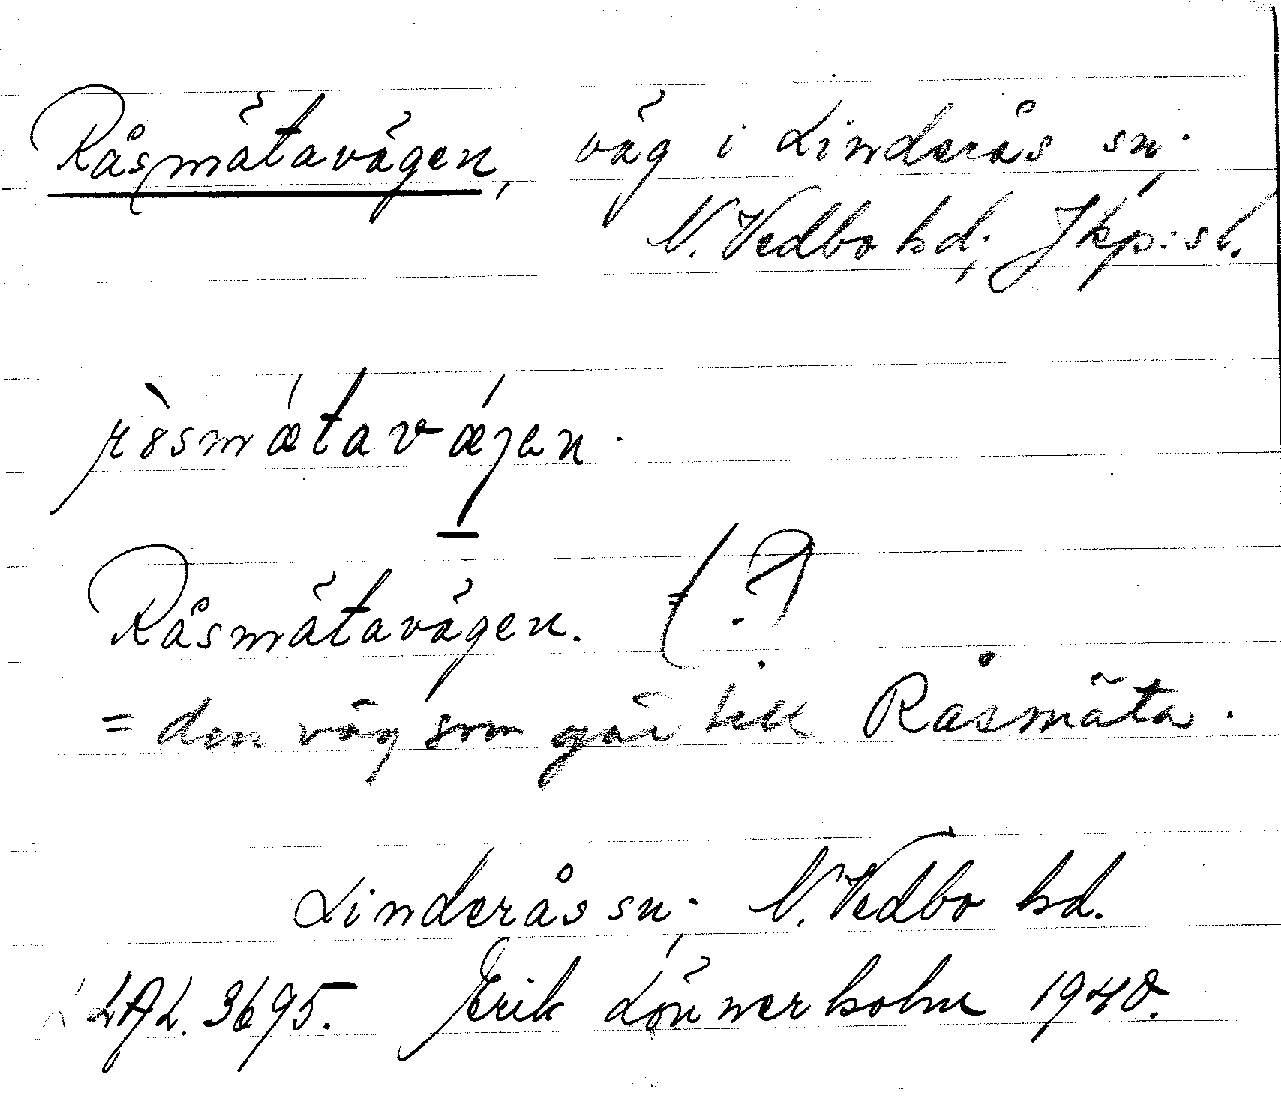 Råsmätavägen, väg i Linderås sn;
N. Vedbo hd; Jkp:s l.
Råsmätavägen. (?)
= den väg som går till Råsmäta.
Linderås sn; N. Vedbo hd.
LAL. 3695. Erik Lönnerholm 1940.